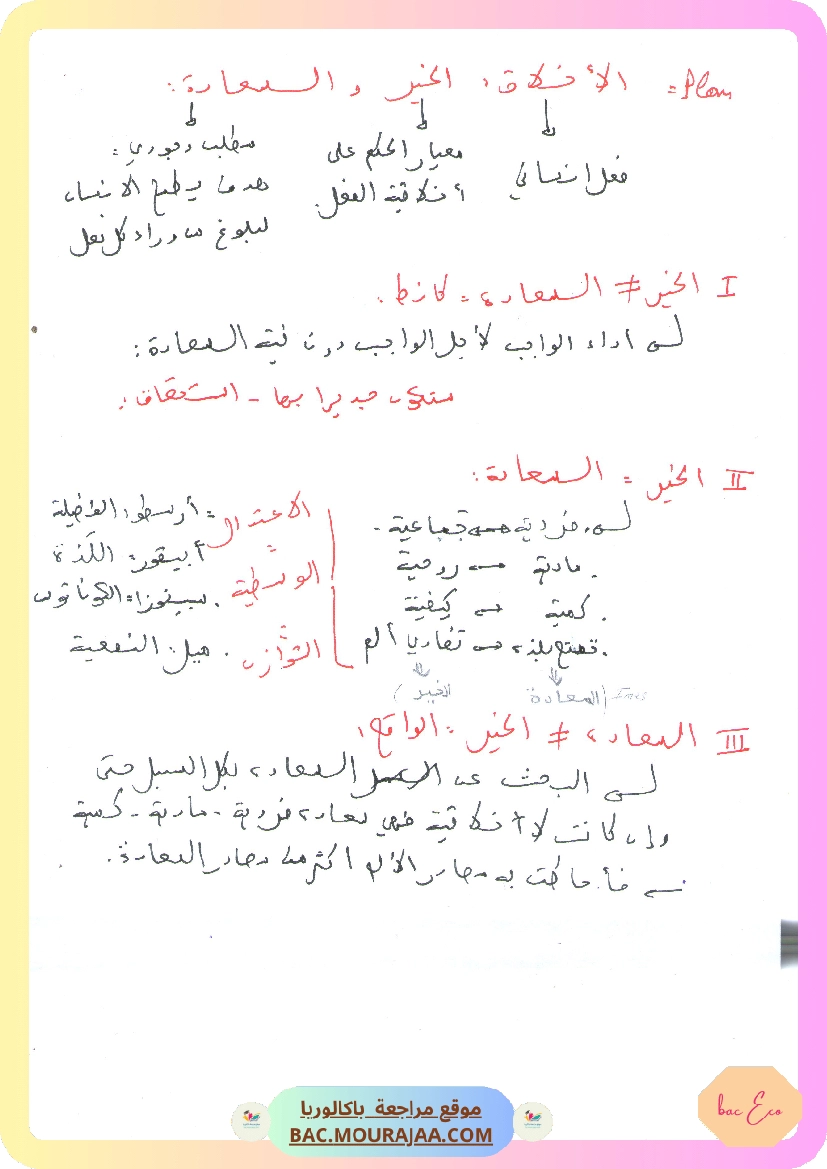 Plan = الأخلاق: الخير و السعادة:
فعل إنساني
معيار الحكم على
أخلاقية الفعل.
مطلب وجودي:
هدف يطمح الإنسان
لبلوغه من وراء كل فعل
I الخير ≠ السعادة = كانط.
أداء الواجب لأجل الواجب دون نية السعادة:
ستكون جديرا بها - استحقاق:
II الخير = السعادة:
فردية ← جماعية.
. مادية ← روحية
. كمية ← كيفية
. تمتع بلذة ← تفادي ألم
(السعادة
الخير)
الاعتدال =
الوسطية
التوازن
أرسطو: الفضيلة
أبيقور: اللذة
. سبينوزا: الكوناتوس
. ميل: النفعية
III السعادة ≠ الخير = الواقع:
البحث عن السعادة بكل السبل حتى
وإن كانت لا أخلاقية فهي سعادة فردية - مادية - كمية
مصادر الألم أكثر من مصادر السعادة.
موقع مراجعة باكالوريا
BAC.MOURAJAA.COM
bac Eco